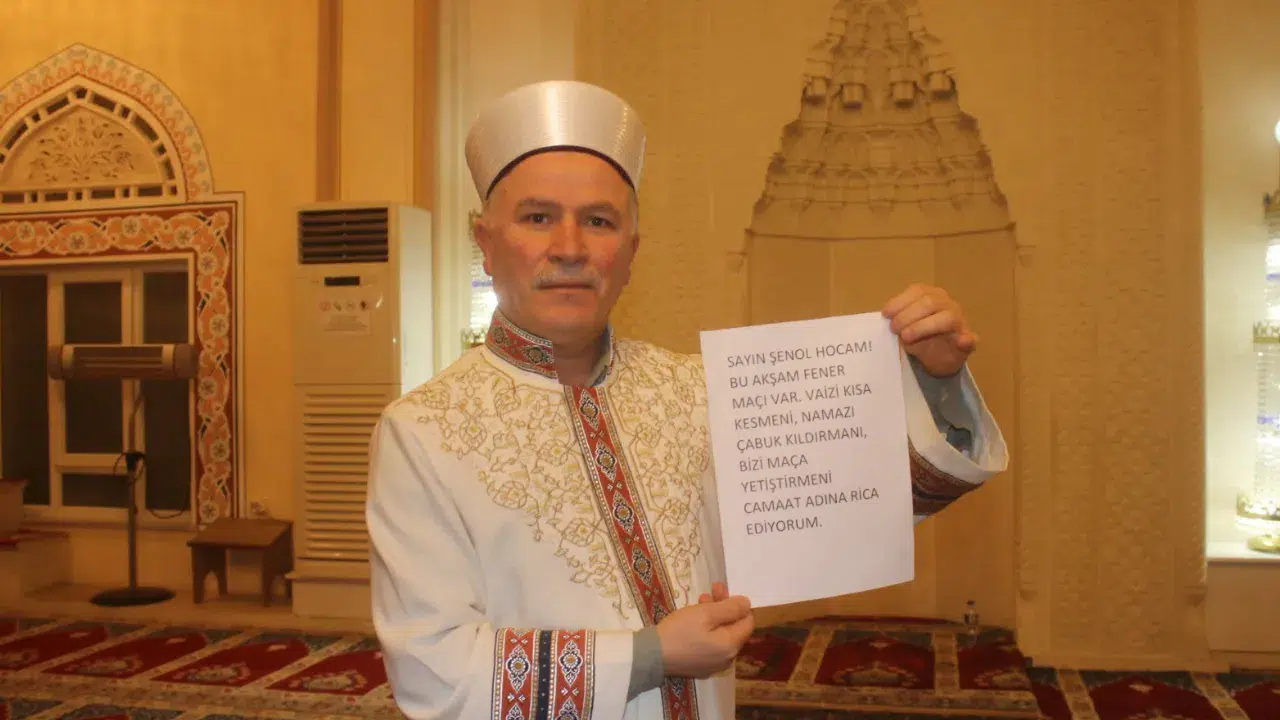 SAYIN ŞENOL HOCAM!
BU AKŞAM FENER
MAÇI VAR. VAİZİ KISA
KESMENİ, NAMAZI
ÇABUK KILDIRMANI,
BİZİ MAÇA
YETİŞTİRMENİ
CAMAAT ADINA RİCA
EDİYORUM.